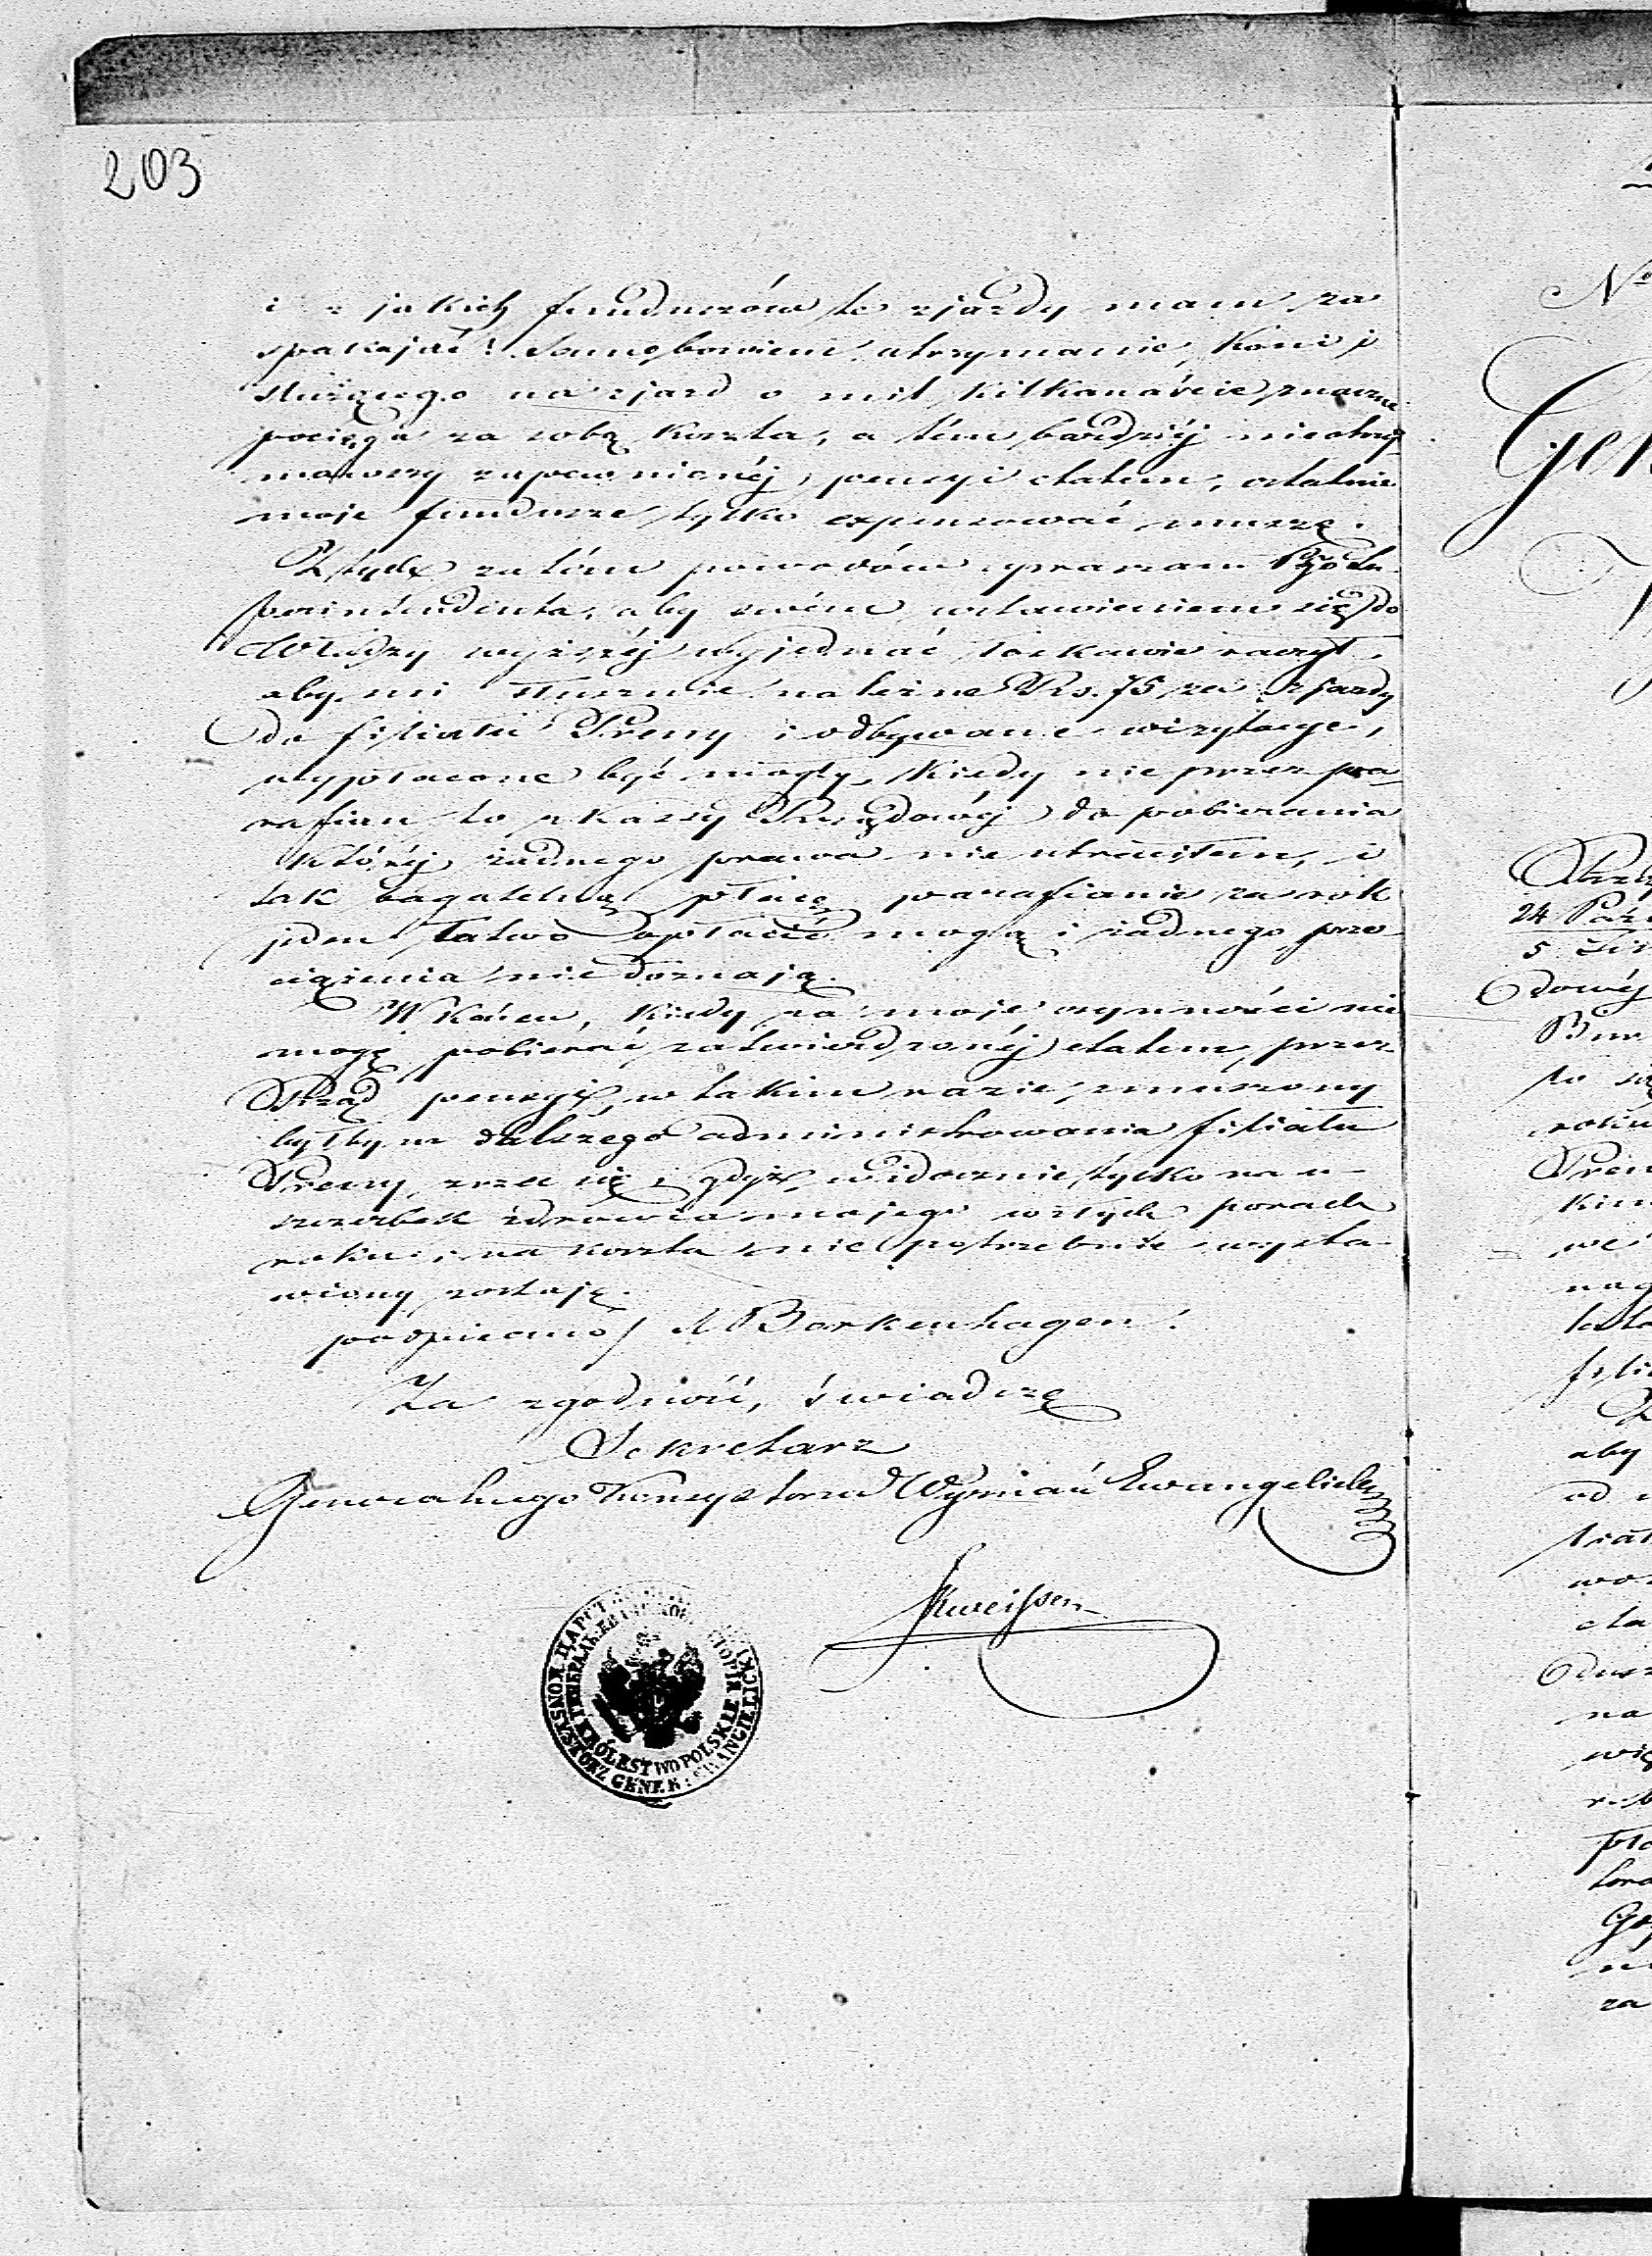 203
i z jakich funduszów te zjazdy mam za
spakajać! Samo bowiem utrzymanie, Koni i
służącego na zjazd o mil kilkanaście znaczne
pociąga za sobą koszta, a tém bardziéj nieotrzy
mawszy zapewnionéj pensyi etatem, ostatnie
moje fundusze tylko expensować muszę.
Z tych zatém powodów upraszam
perintendenta, aby swém wstawieniem się do
Władzy wyższéj wyjednać łaskawie raczył,
aby mi słusznie należne Rs. 75 za zjazdy
do filiału Preny i odbywane wizytacye,
wypłacone być mogły, kiedy nie przez pa
rafian to z Kassy Rządowéj do pobierania
któréj żadnego prawa nie utraciłem, i
tak bagatelną płacę parafianie za rok
jeden łatwo opłacić mogą i żadnego prze
ciążenia nie doznają.
W końcu, kiedy za moje czynności nie
mogę pobierać zatwierdzonéj etatem przez
Rząd pensyi, w takim razie zmuszony
byłbym dalszego administrowania filiału
Preny zrzec się, gdyż widocznie tylko na u-
szczerbek zdrowia mojego w złych porach
roku, i na koszta nie potrzebnie wysta
wiony zostaję.
podpisano/ A Barkenhagen.
Za zgodność, świadczę
Sekretarz
Generalnego Konsystorza Wyznań Ewangelick
KONSYSTORZ GENER: EWANGIELICKI
KRÓLESTWO POLSKIE
Nº
Gen
24 Paź
5
dowéj
aby
od
na
za